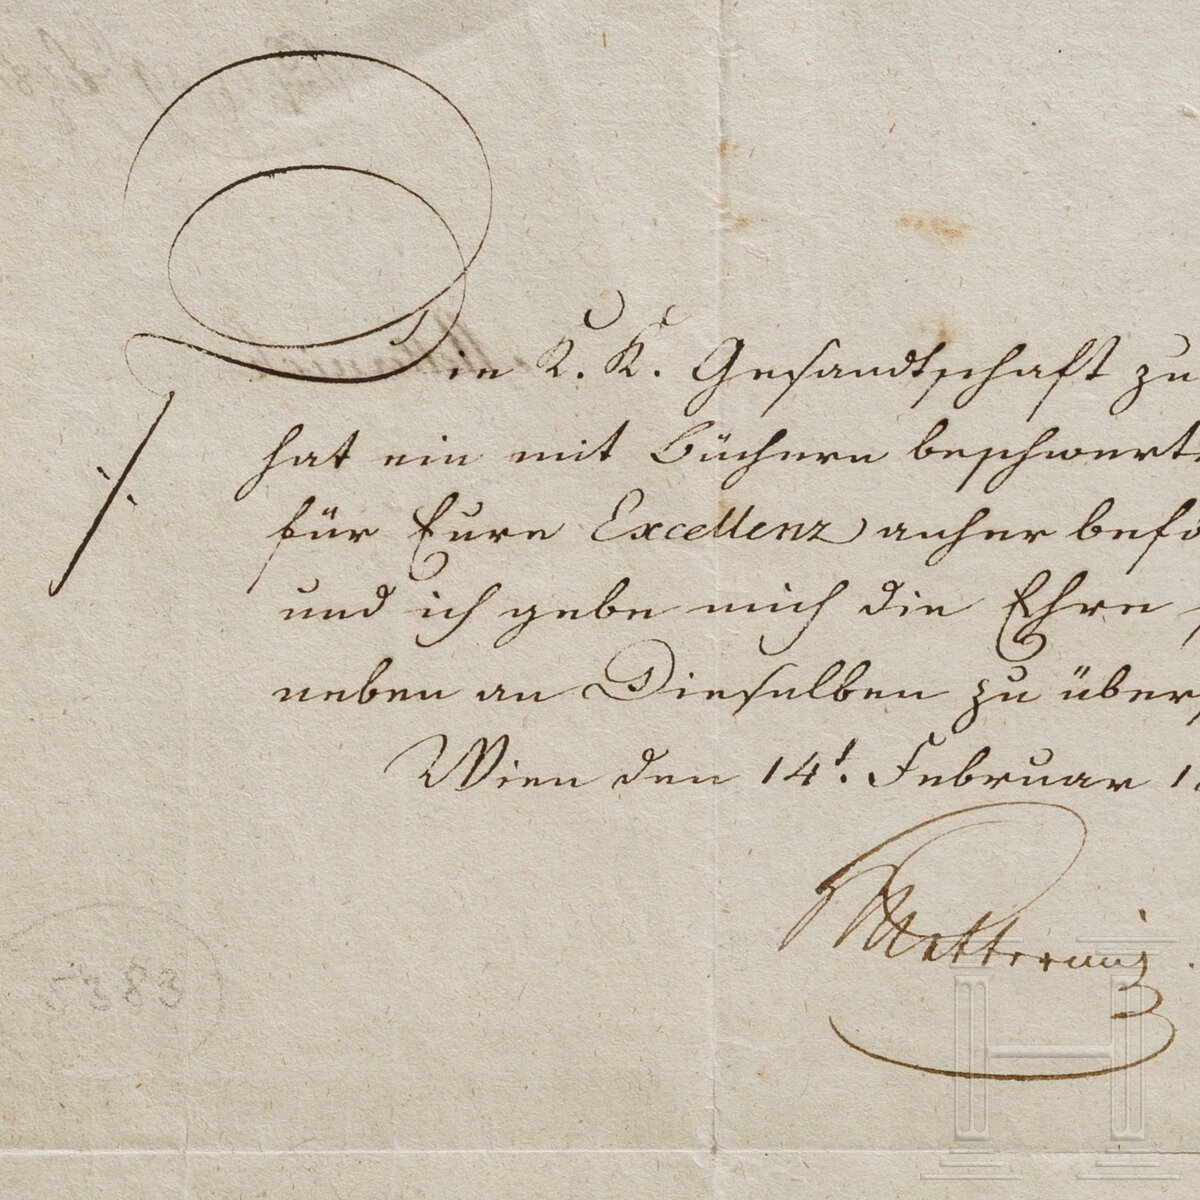 Die K. K. Gesandtschaft zu
hat ein mit Büchern beschwerte
für Eure Excellenz anher befo
und ich gebe mich die Ehre
neben an Dieselben zu übers
Wien den 14t. Februar 1
Metternich
5383